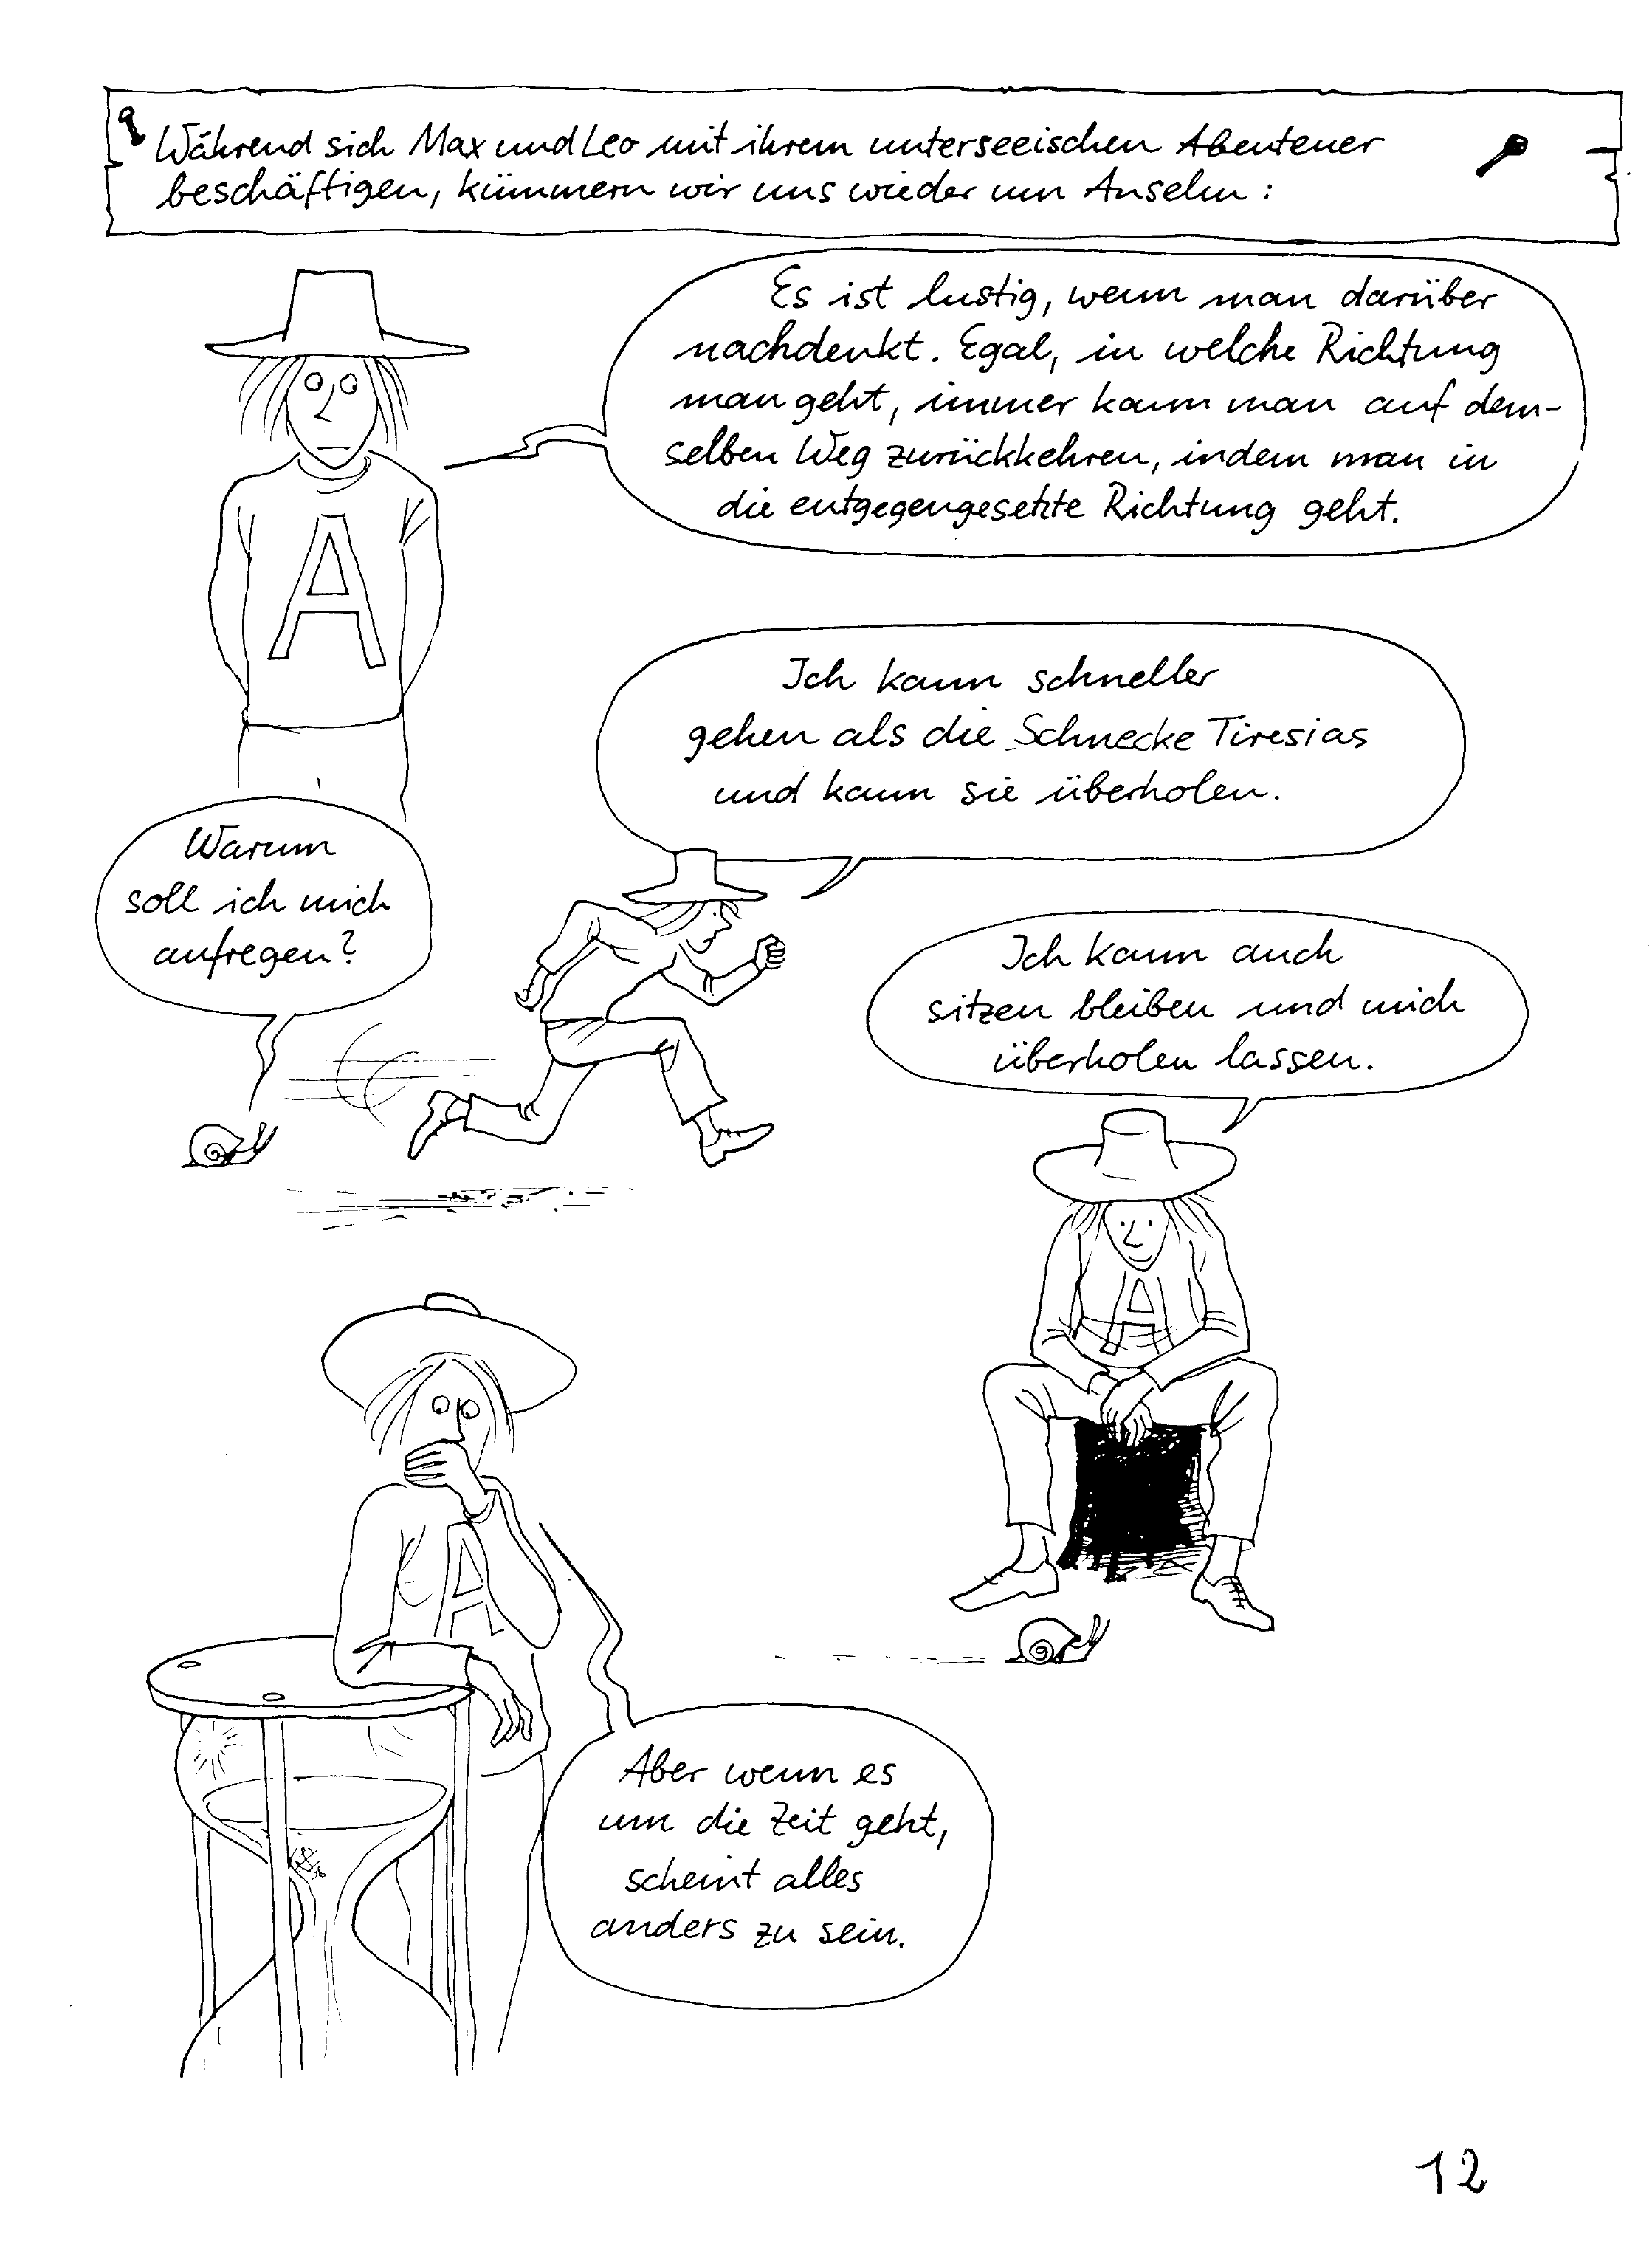 Während sich Max und Leo mit ihrem unterseeischen Abenteuer
beschäftigen, kümmern wir uns wieder um Anselm:
Es ist lustig, wenn man darüber
nachdenkt. Egal, in welche Richtung
man geht, immer kann man auf dem-
selben Weg zurückkehren, indem man in
die entgegengesetzte Richtung geht.
A
Ich kann schneller
gehen als die Schnecke Tiresias
und kann sie überholen.
Warum
soll ich mich
aufregen?
Ich kann auch
sitzen bleiben und mich
überholen lassen.
A
A
Aber wenn es
um die Zeit geht,
scheint alles
anders zu sein.
12